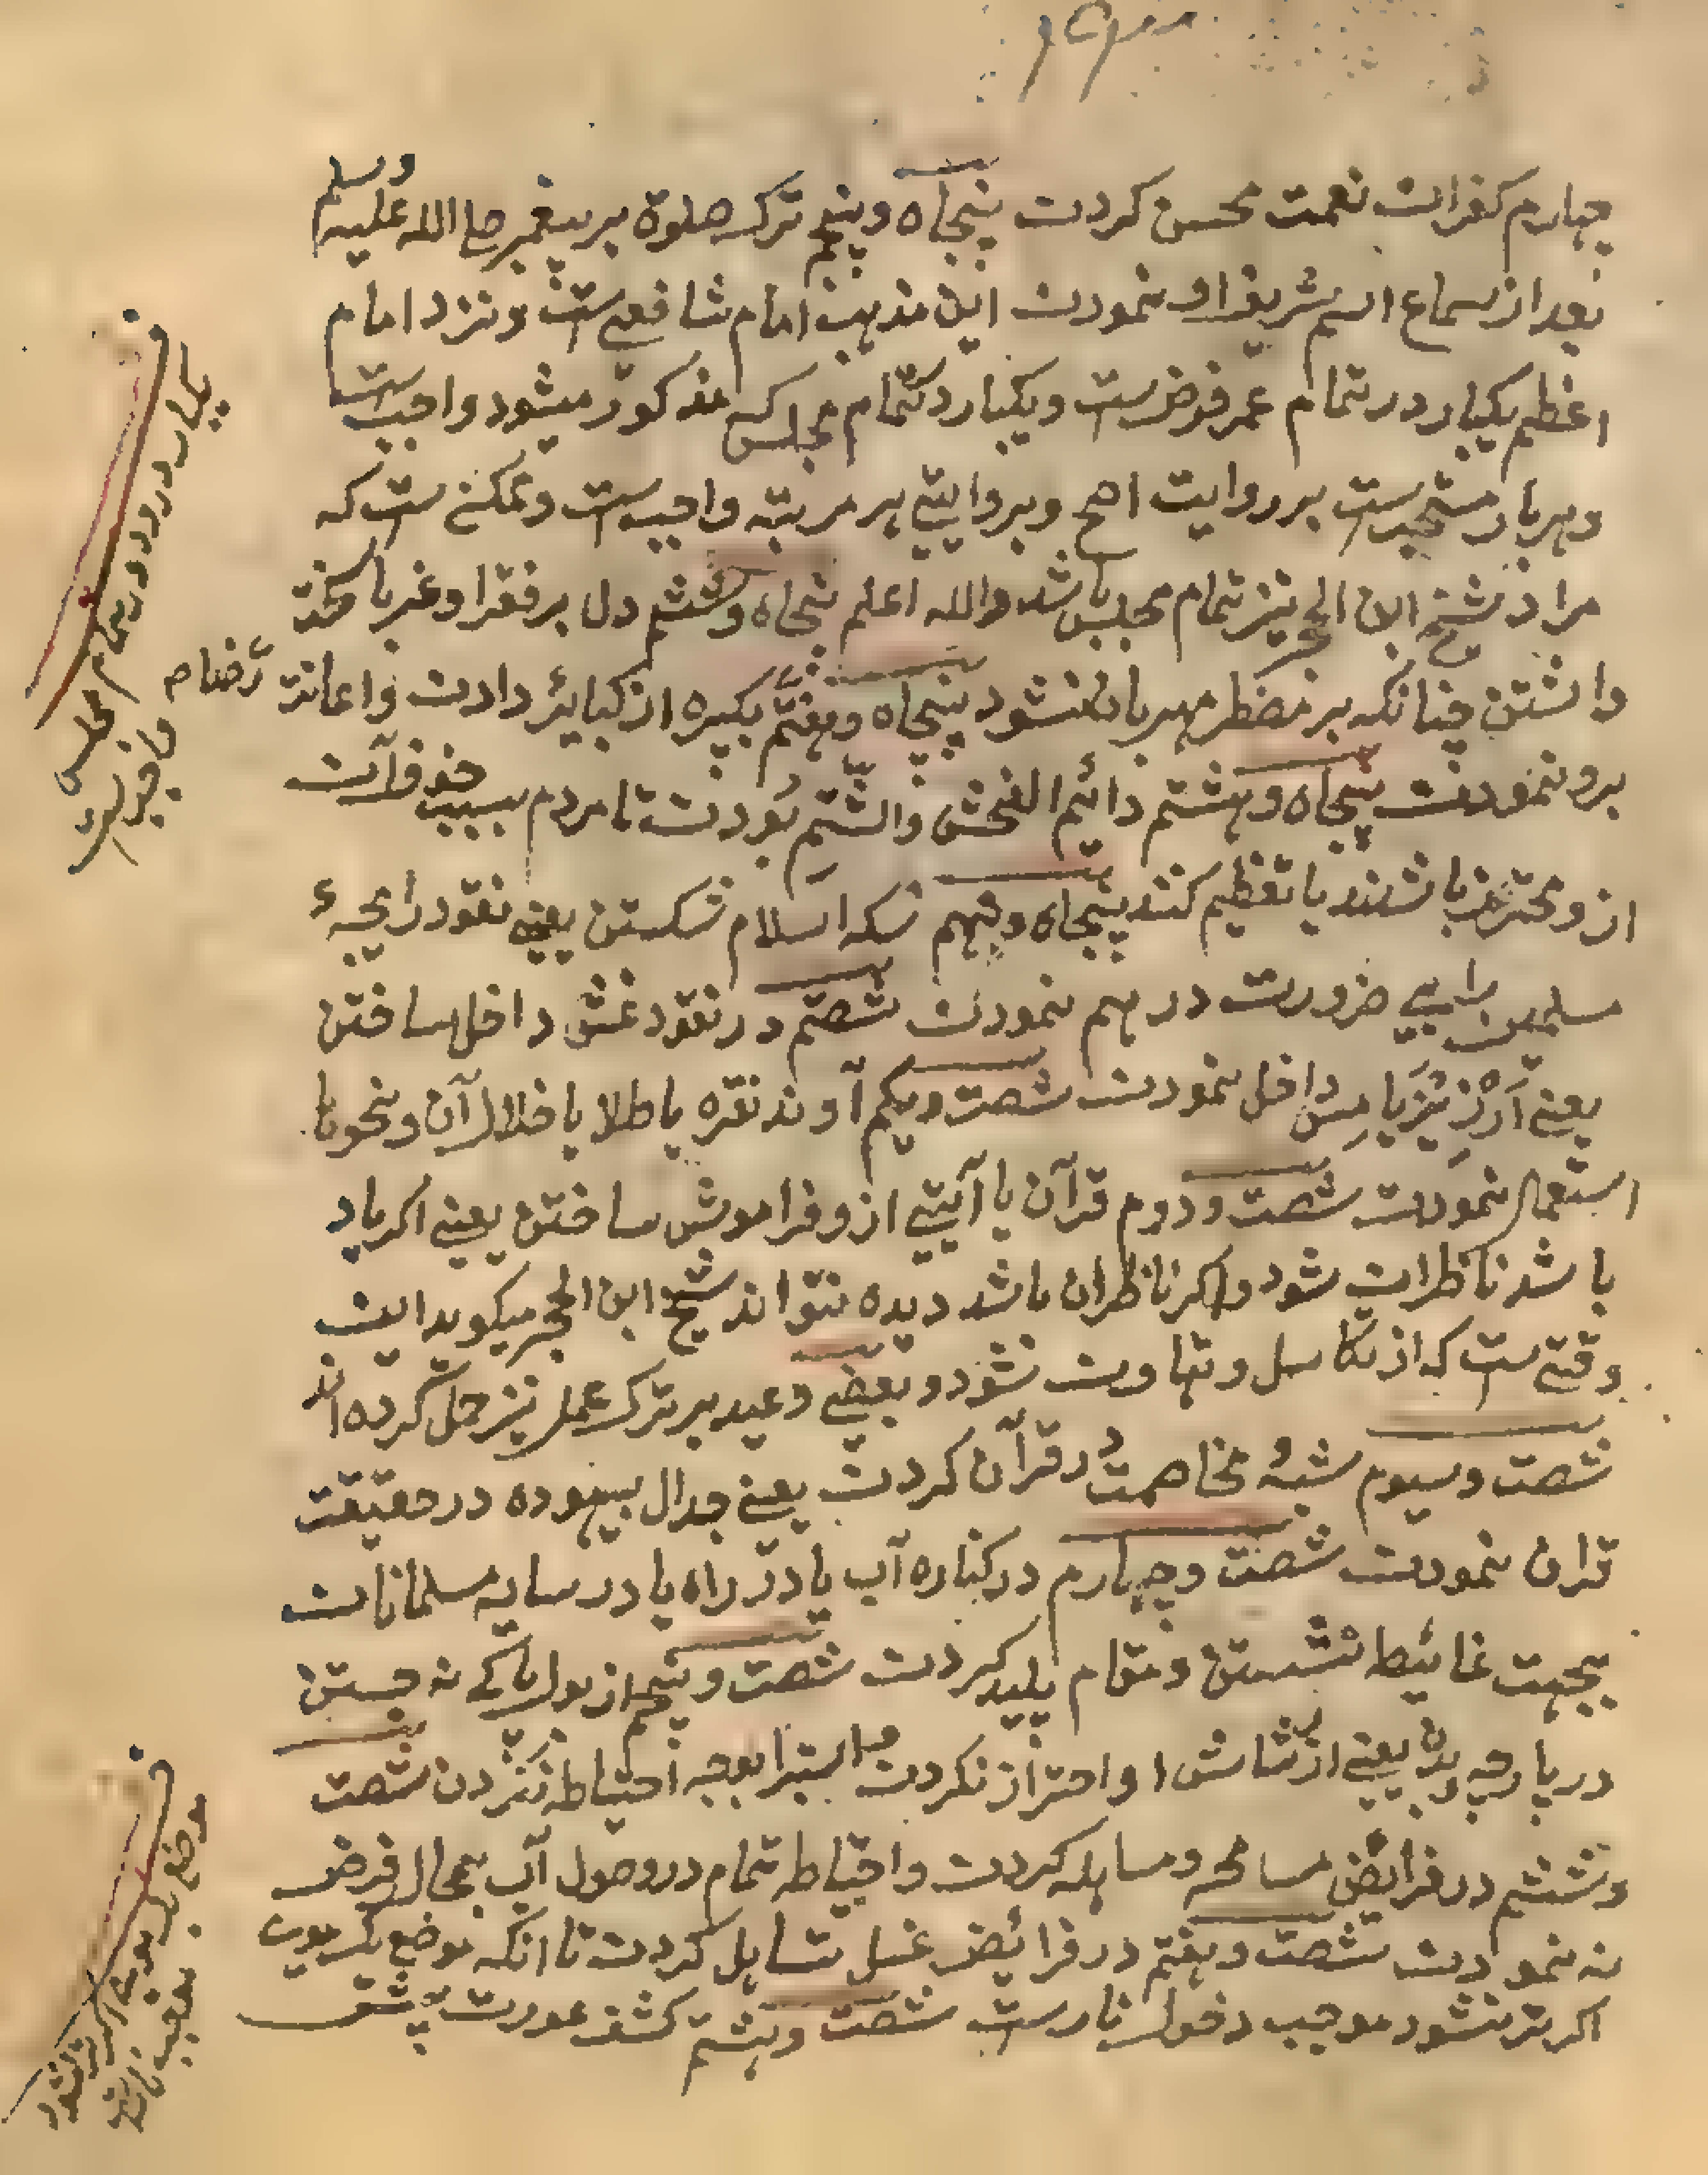 چهارم کفران نعمت محسن کردن پنجاه و پنجم ترک صلوة بر پیغمبر صلی الله علیه وسلم
بعد از سماع اسم شریف او نمودن این مذهب امام شافعی ست و نزد امام
اعظم یکبار در تمام عمر فرض ست و یکبار در تمام مجلس که مذکور میشود واجب ست
و هر بار مستحب ست بر روایت اصح و بروایتی هر مرتبه واجب ست و ممکن ست که
مراد شیخ ابن الحجر نیز تمام مجلس باشد والله اعلم پنجاه و ششم دل بر فقرا و غربا سخت
داشتن چنانکه بر مضطر مهربان نشود پنجاه و هفتم بکبیره از کبایر رضا دادن و اعانت
برو نمودن پنجاه و هشتم دائم الفحش والشتم بودن تا مردم بسبب خوف آن
ازو محترز باشند یا تعظیم کنند پنجاه و نهم سکه اسلام شکستن یعنی نقود رایجهٔ
مسلمین را بی ضرورت درهم نمودن شصتم در نقود غش داخل ساختن
یعنی ارزیز یا مس داخل نمودن شصت و یکم آوند نقره یا طلا یا خلال آن و نحوها
استعمال نمودن شصت و دوم قرآن یا آیتی ازو فراموش ساختن یعنی اکر یاد
باشد ناظران شود و اکر ناظران باشد دیده نتواند شیخ ابن الحجر میکوید این
وقتی ست که از تکاسل و تهاون نشود و بعضی وعید بر ترک عمل نیز حمل کرده اند
شصت و سیوم شبهٔ مخاصمت در قرآن کردن یعنی جدال بیهوده در حقیقت
قران نمودن شصت و چهارم در کناره آب یا در راه یا در سایه مسلمانان
بجهت غائیط نشستن و مقام پلید کردن شصت و پنجم از بول پاکی نه جستن
در پارچه و بدن یعنی از شاش او احتراز نکردن و استبرا بوجه احتیاط نکردن شصت
و ششم در فرائض مسامحه و مساهله کردن و احتیاط تمام در وصول آب بمحال فرض
نه نمودن شصت و هفتم در فرائض غسل تساهل کردن تا انکه موضع یک موی
اکر تر نشود موجب دخول نار ست شصت و هشتم کشف عورت پیش
یکبار درود در تمام مجلس
واجب بود
موضع یک موی اکر تر نشود
موجب نار ست